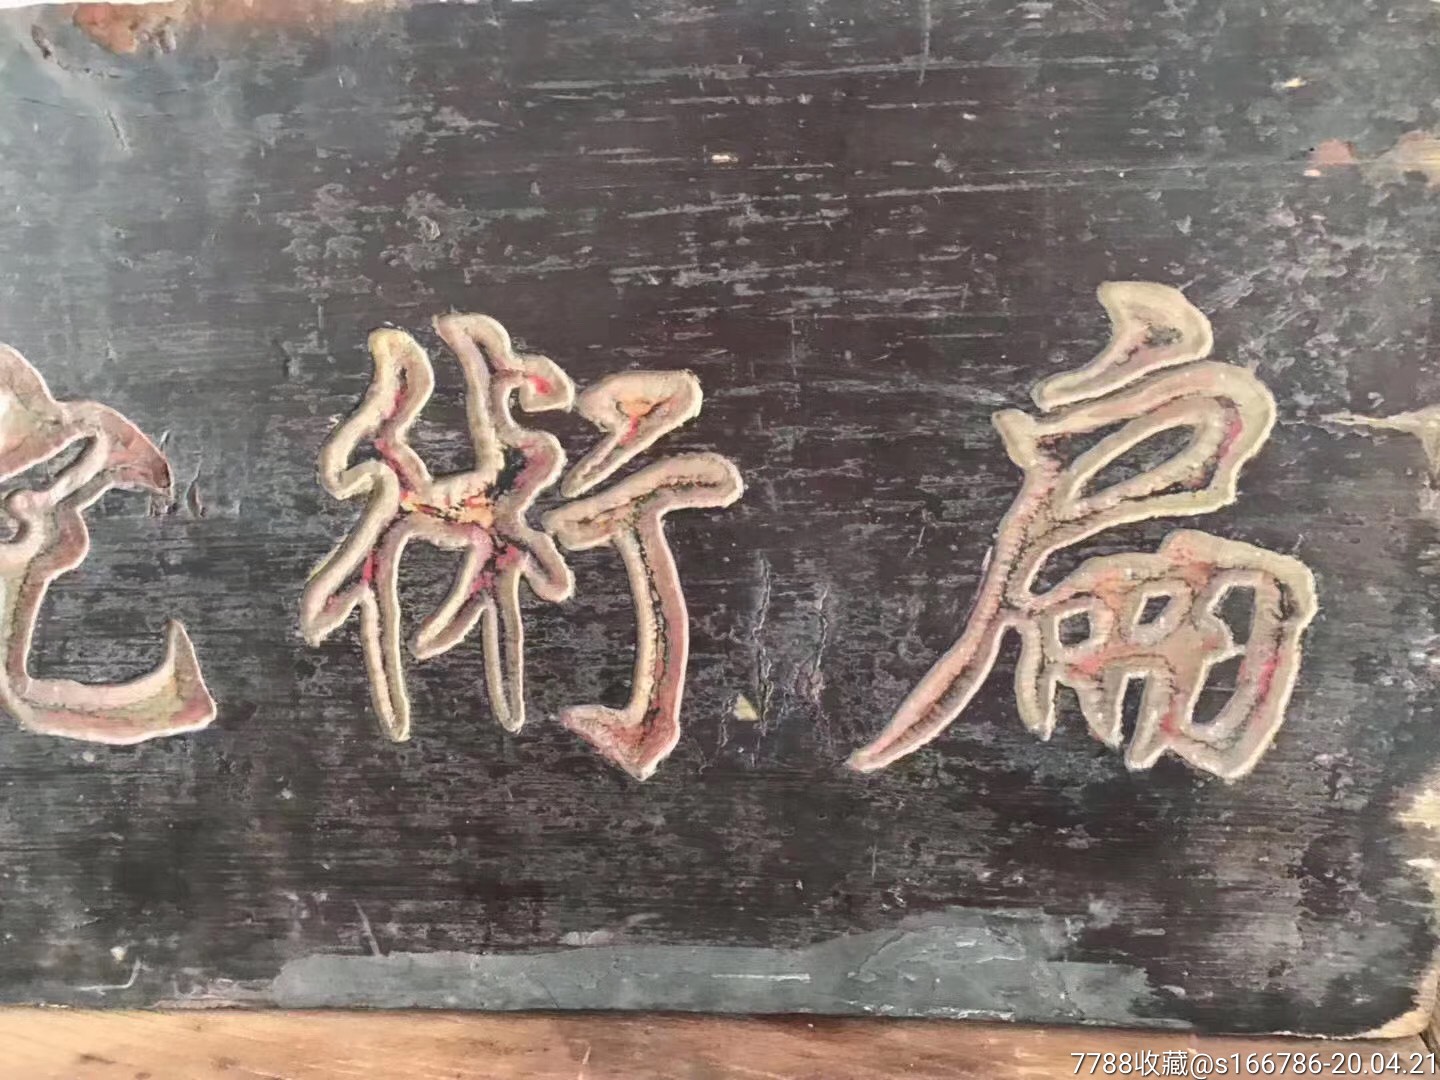 扁術
7788收藏@s166786-20.04.21